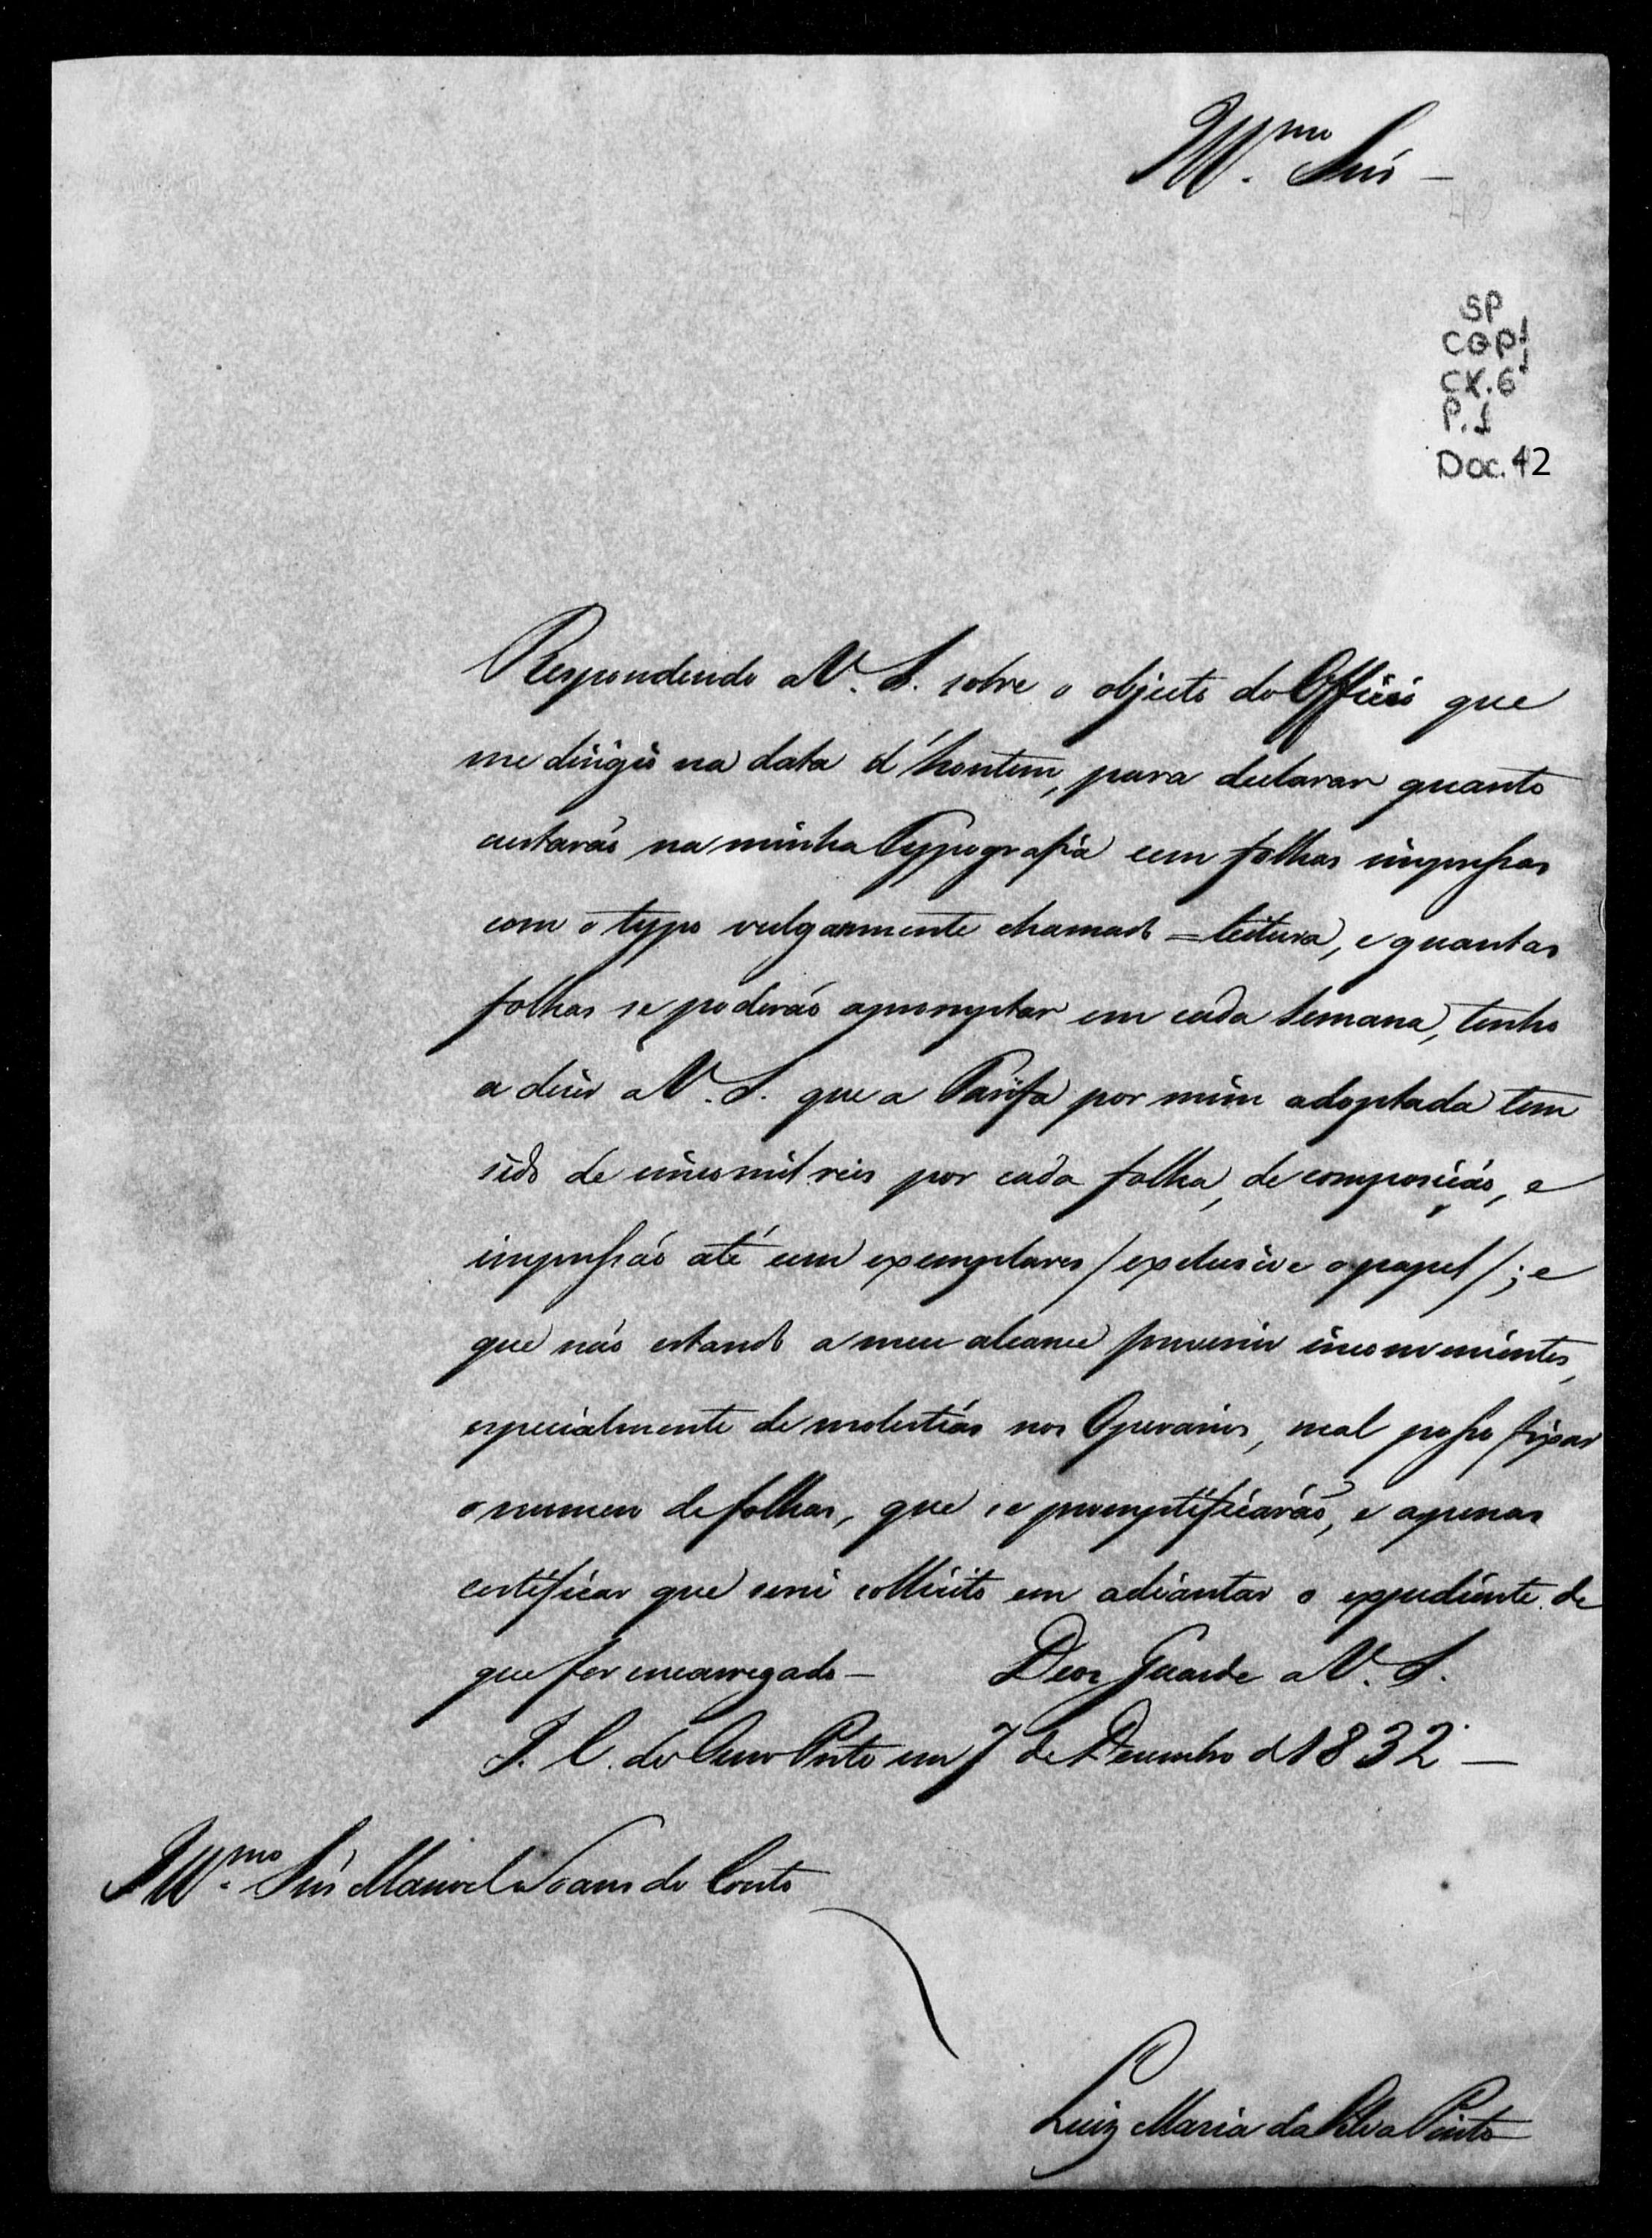 Illmo. Snr. —
SP
CGP1
CX.6
P.1
Doc. 42
Respondendo a V. S. sobre o objecto do Officio que
me dirigio na data d'hontem, para declarar quanto
custarão na minha Typografia cem folhas impressas
com o typo vulgarmente chamado = leitura, e quantas
folhas se poderão apromptar em cada Semana, tenho
a dizer a V. S. que a Tarifa por mim adoptada tem
sido de cinco mil reis por cada folha, de composição, e
impressão até cem exemplares / exclusive o papel /; e
que não estando a meu alcance prevenir inconvenientes,
especialmente de molestias nos Operarios, mal posso fixar
o numero de folhas, que se promptificarão, e apenas
certificar que serei sollicito em adiantar o expediente de
que for encarregado — Deos Guarde a V. S.
I. C. do Ouro Preto em 7 de Dezembro d 1832 —
Illmo. Snr. Manoel Soares do Couto
Luiz Maria da Silva Pinto